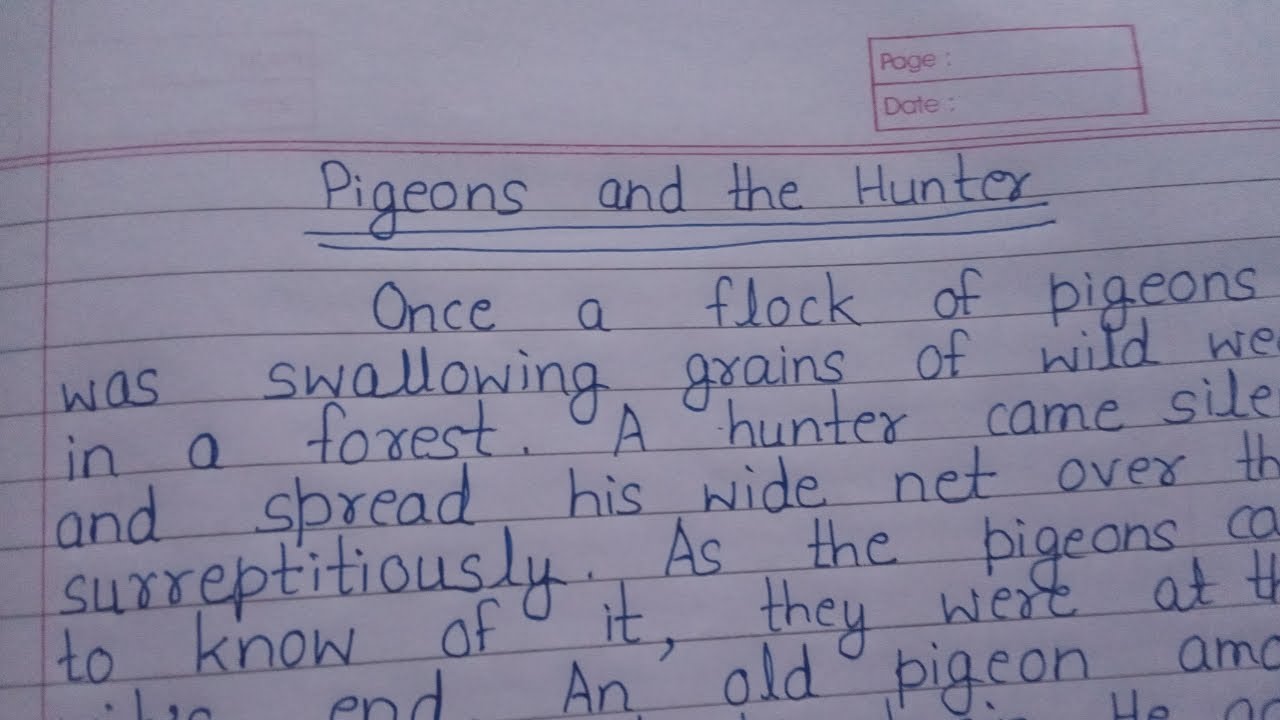 Page :
Date :
Pigeons and the Hunter
Once a flock of pigeons
was swallowing grains of wild
in a forest. A hunter came
and spread his wide net over
surreptitiously. As the pigeons
to know of it, they were at
end. An old pigeon
He